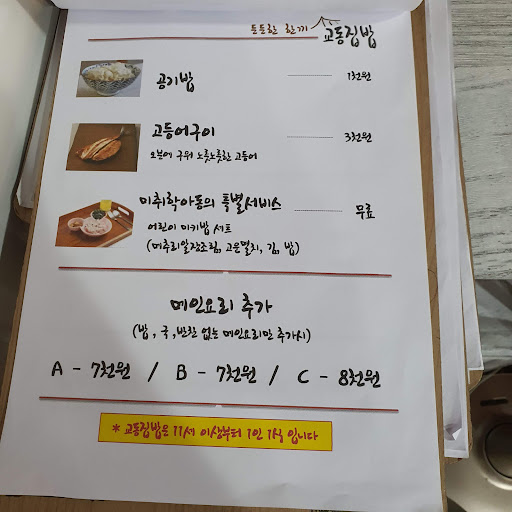 든든한 한끼 교동집밥
공기밥 ·········· 1천원
고등어구이 ·········· 3천원
오븐에 구워 노릇노릇한 고등어
미취학아동의 특별서비스 ·········· 무료
어린이 미키밥 세트
(메추리알장조림, 고운멸치, 김, 밥)
메인요리 추가
(밥, 국, 반찬 없는 메인요리만 추가시)
A - 7천원 / B - 7천원 / C - 8천원
* 교동집밥은 11세 이상부터 1인 1식 입니다